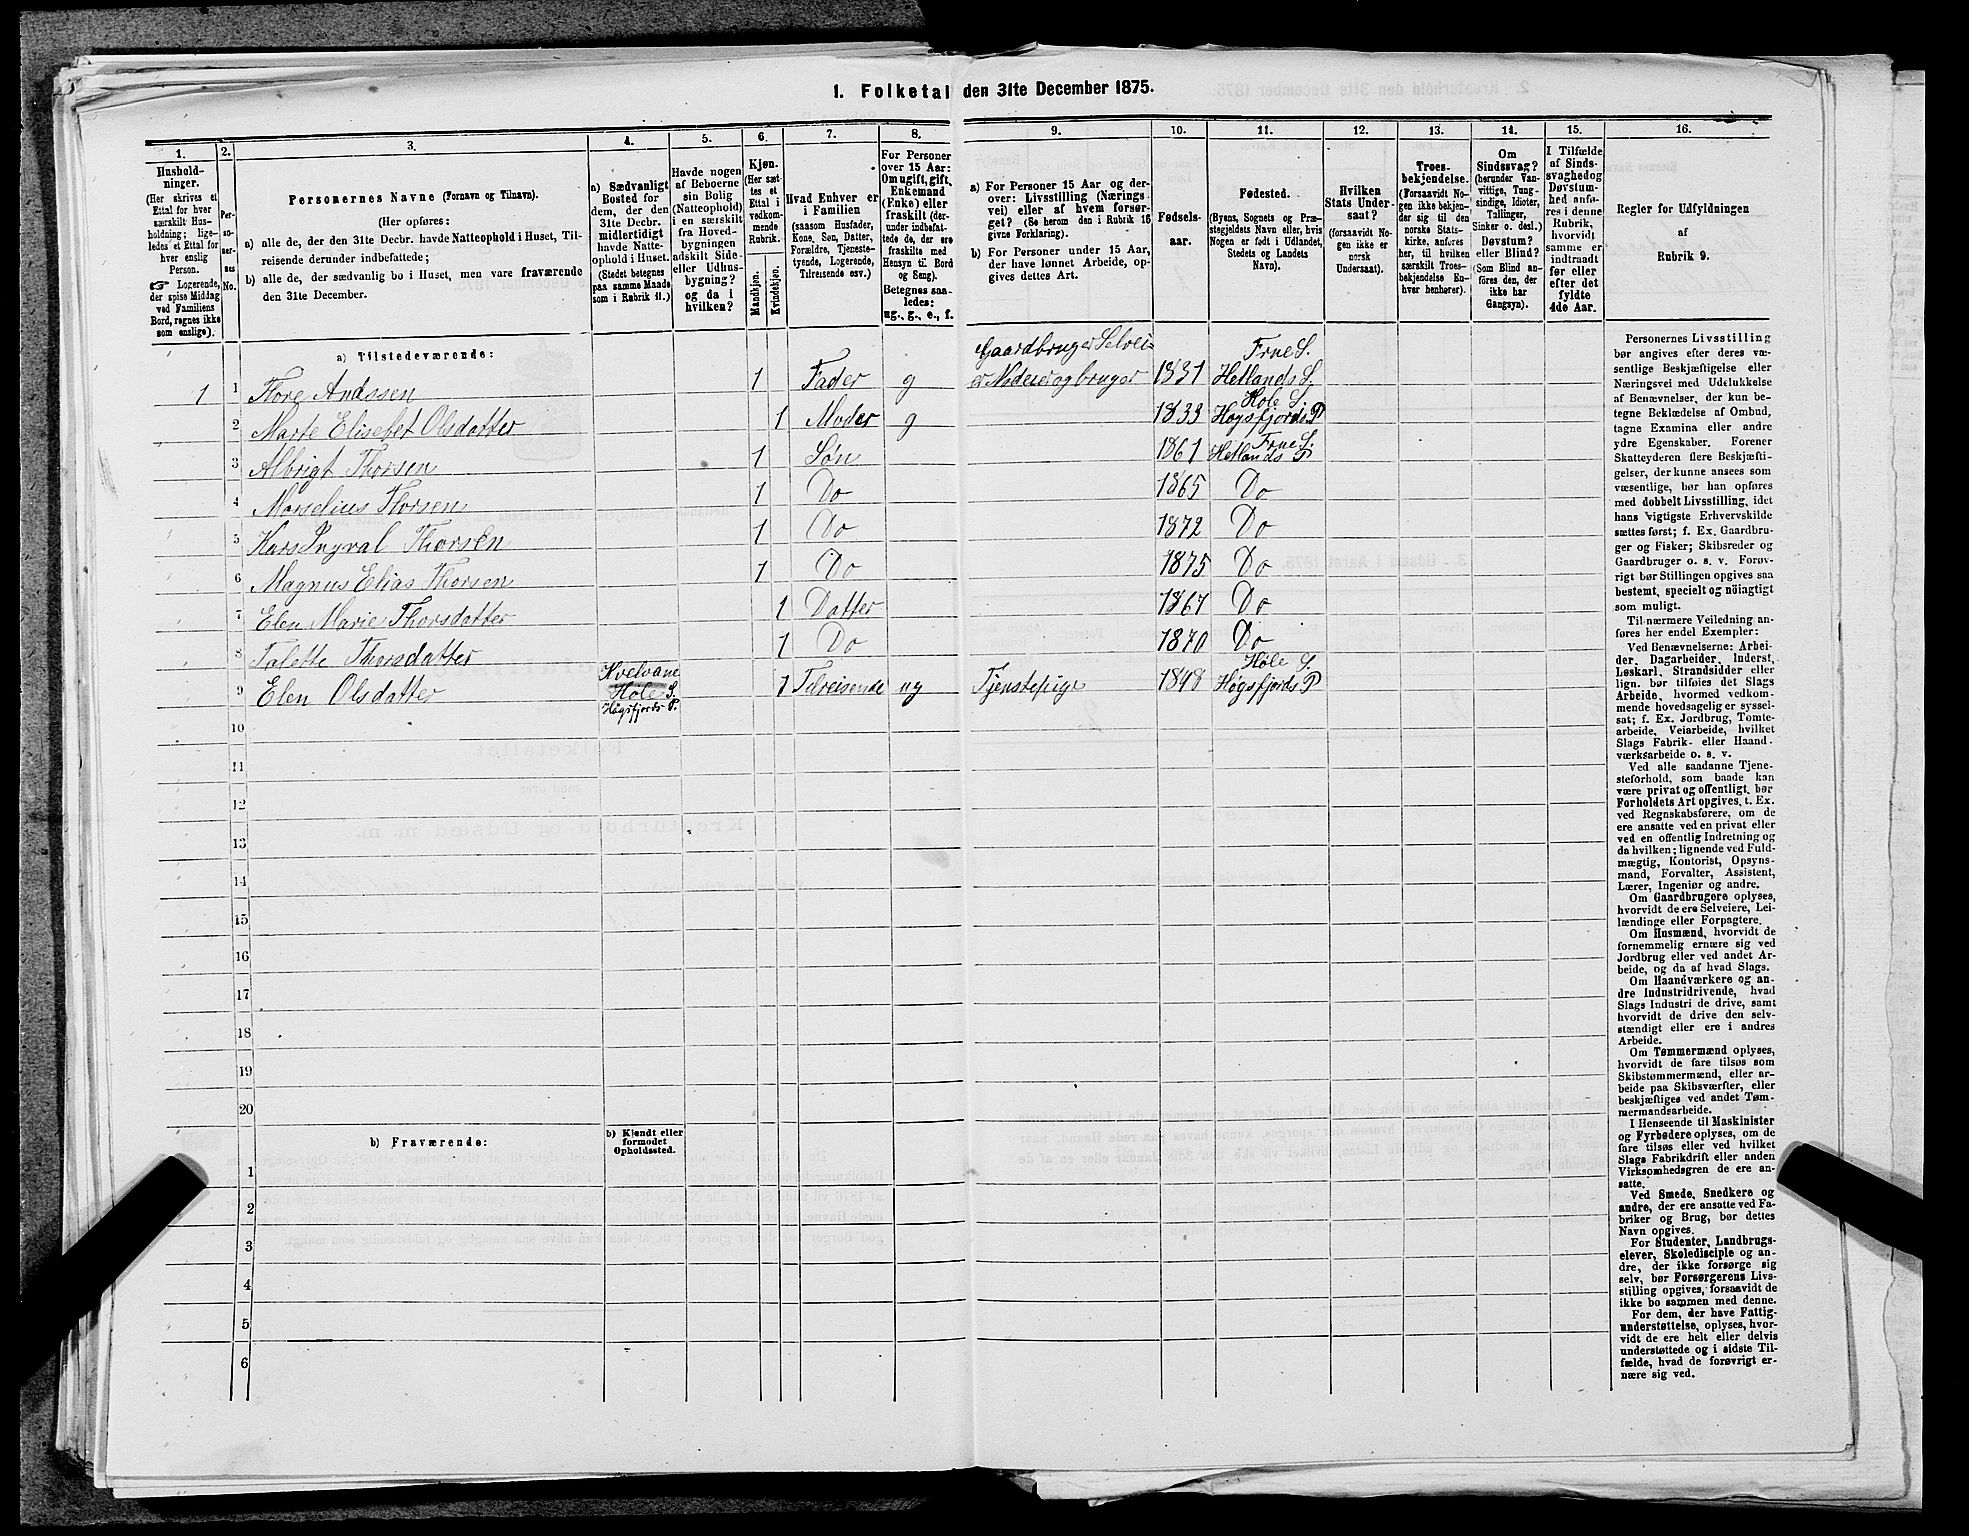 1. Folketal den 31te December 1875.
1.
2.
3.
4.
5.
6.
7.
8.
9.
10.
11.
12.
13.
14.
15.
16.
Husholdninger.
(Her skrives et
Ettal for hver
særskilt Husholdning;
ligeledes et Ettal for
hver enslig
Person.
☞ Logerende,
der spise Middag
ved Familiens
Bord, regnes ikke
som enslige).
Personernes No.
Personernes Navne (Fornavn og Tilnavn).
(Her opføres:
a) alle de, der den 31te Decbr. havde Natteophold i Huset, Tilreisende derunder indbefattede;
b) alle de, der sædvanlig bo i Huset, men vare fraværende
den 31te December.
a) Sædvanligt
Bosted for
dem, der den
31te Decbr.
midlertidigt
havde Natteophold
i Huset.
(Stedet betegnes
paa samme Maade
som i Rubrik 11.)
Havde nogen
af Beboerne
sin Bolig
(Natteophold)
i en særskilt
fra Hovedbygningen
adskilt Side-
eller Udhusbygning?
og da i
hvilken?
Kjøn.
(Her sættes et
Ettal i
vedkommende
Rubrik.
Mandkjøn.
Kvindekjøn.
Hvad Enhver er
i Familien
(saasom Husfader,
Kone, Søn, Datter,
Forældre, Tjenestetyende,
Logerende,
Tilreisende osv.)
For Personer
over 15 Aar:
Om ugift, gift,
Enkemand
(Enke) eller
fraskilt (derunder
indbefattede de, der ere
fraskilte med
Hensyn til Bord
og Seng).
Betegnes saaledes:
ug., g., e., f.
a) For Personer 15 Aar og derover:
Livsstilling (Næringsvei)
eller af hvem forsørget?
(Se herom den i Rubrik 16
givne Forklaring).
b) For Personer under 15 Aar,
der have lønnet Arbeide, opgives
dettes Art.
Fødselsaar.
Fødested.
(Byens, Sognets og Præstegjeldets
Navn eller, hvis
Nogen er født i Udlandet,
Stedets og Landets
Navn).
Hvilken
Stats Undersaat?
(forsaavidt Nogen
ikke er
norsk
Undersaat).
Troesbekjendelse.
(Forsaavidt Nogen
ikke bekjender
sig til den
norske Statskirke,
anføres
her, til hvilken
særskilt Troesbekjendelse
Enhver
henhører).
Om
Sindssvag?
(herunder Vanvittige,
Tungsindige,
Idioter,
Tullinger,
Sinker o. desl.)
Døvstum?
eller Blind?
(Som Blind anføres
den, der
ikke har
Gangsyn).
I Tilfælde
af Sindssvaghed
og
Døvstumhed
anføres
i denne
Rubrik,
hvorvidt
samme er
indtraadt
før eller
efter det
fyldte
4de Aar.
Regler for Udfyldningen
af
Rubrik 9.
a) Tilstedeværende:
1 1 Thore Andssen 1 Fader g Gaardbruger Selveier Nodeier og bruger 1831 Frue S. Hetlands S.
2 Marte Elisebet Olsdatter 1 Moder g 1833 Hole S. Høgsfjords P
3 Albrigt Thorsen 1 Søn 1861 Frue S. Hetlands P
4 Marselius Thorsen 1 Do 1865 Do
5 Kars Ingval Thorsen 1 Do 1872 Do
6 Magnus Elias Thorsen 1 Do 1875 Do
7 Elen Marie Thorsdatter 1 Datter 1867 Do
8 Talette Thorsdatter 1 Do 1870 Do
9 Elen Olsdatter Kvelvane Høle S. Høgsfjords P. 1 Tilreisende ug Tjenstepige 1848 Høle S. Høgsfjords P
10
11
12
13
14
15
16
17
18
19
20
b) Fraværende:
b) Kjendt eller
formodet
Opholdssted.
1
2
3
4
5
6
Personernes Livsstilling
bør angives efter deres væsentlige
Beskjæftigelse eller
Næringsvei med Udelukkelse
af Benævnelser, der kun betegne
Beklædelse af Ombud,
tagne Examina eller andre
ydre Egenskaber. Forener
Skatteyderen flere Beskjæftigelser,
der kunne ansees som
væsentlige, bør han opføres
med dobbelt Livsstilling, idet
hans vigtigste Erhvervskilde
sættes først; f. Ex. Gaardbruger
og Fisker; Skibsreder og
Gaardbruger o. s. v. Forøvrigt
bør Stillingen opgives saa
bestemt, specielt og nöiagtigt
som muligt.
Til nærmere Veiledning anføres
her endel Exempler:
Ved Benævnelserne: Arbeider,
Dagarbeider, Inderst,
Løskarl, Strandsidder eller
lign. bør tilføies det Slags
Arbeide, hvormed vedkommende
hovedsagelig er sysselsat;
f. Ex. Jordbrug, Tomtearbeide,
Veiarbeide, hvilket
Slags Fabrik- eller Haandværksarbeide
o. s. v.
Ved alle saadanne Tjenesteforhold,
som baade kan
være privat og offentligt, bør
Forholdets Art opgives, t. Ex.
ved Regnskabsførere, om de
ere ansatte ved en privat eller
ved en offentlig Indretning og
da hvilken; lignende ved Fuldmægtig,
Kontorist, Opsynsmand,
Forvalter, Assistent,
Lærer, Ingeniør og andre.
Om Gaardbrugere oplyses,
hvorvidt de ere Selveiere, Leilændinge
eller Forpagtere.
Om Husmænd, hvorvidt de
fornemmelig ernære sig ved
Jordbrug eller ved andet Arbeide,
og da af hvad Slags.
Om Haandværkere og andre
Industridrivende, hvad
Slags Industri de drive, samt
hvorvidt de drive den selvstændigt
eller ere i andres
Arbeide.
Om Tømmermænd oplyses,
hvorvidt de fare tilsøs som
Skibstømmermænd, eller arbeide
paa Skibsværfter, eller
beskjæftiges ved andet Tømmermandsarbeide.
I Henseende til Maskinister
og Fyrbødere oplyses, om de
fare tilsøs eller ved hvilket
Slags Fabrikdrift eller anden
Virksomhedsgren de ere ansatte.
Ved Smede, Snedkere og
andre, der ere ansatte ved Fabriker
og Brug, bør dettes
Navn opgives.
For Studenter, Landbrugselever,
Skoledisciple og andre,
der ikke forsørge sig
selv, bør Forsørgerens Livsstilling
opgives, forsaavidt de
ikke bo sammen med denne.
For dem, der have Fattigunderstøttelse,
oplyses, hvorvidt
de ere helt eller delvis
understøttede og i sidste Tilfælde,
hvad de forøvrigt ernære
sig ved.